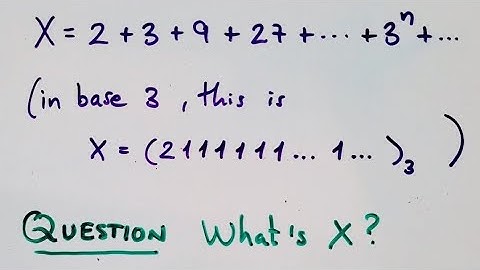 X = 2 + 3 + 9 + 27 + ... + 3ⁿ + ...
(in base 3, this is
X = (2111111... 1... )₃ )
QUESTION What is X?